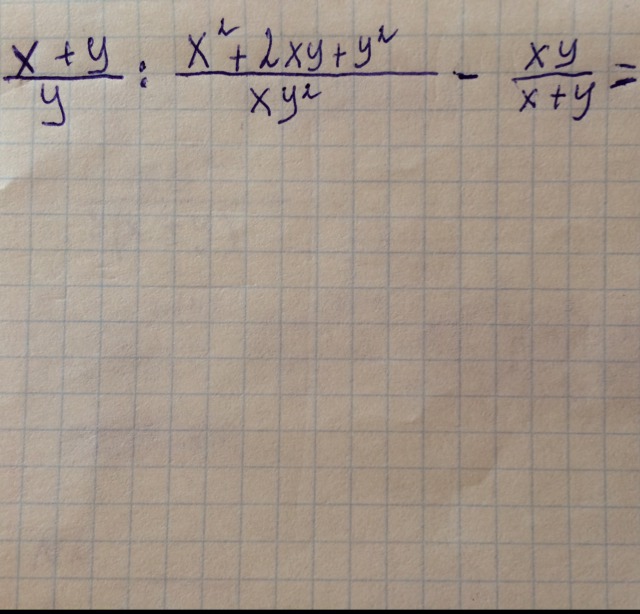 (x + y)/y : (x² + 2xy + y²)/(xy²) - (xy)/(x + y) =